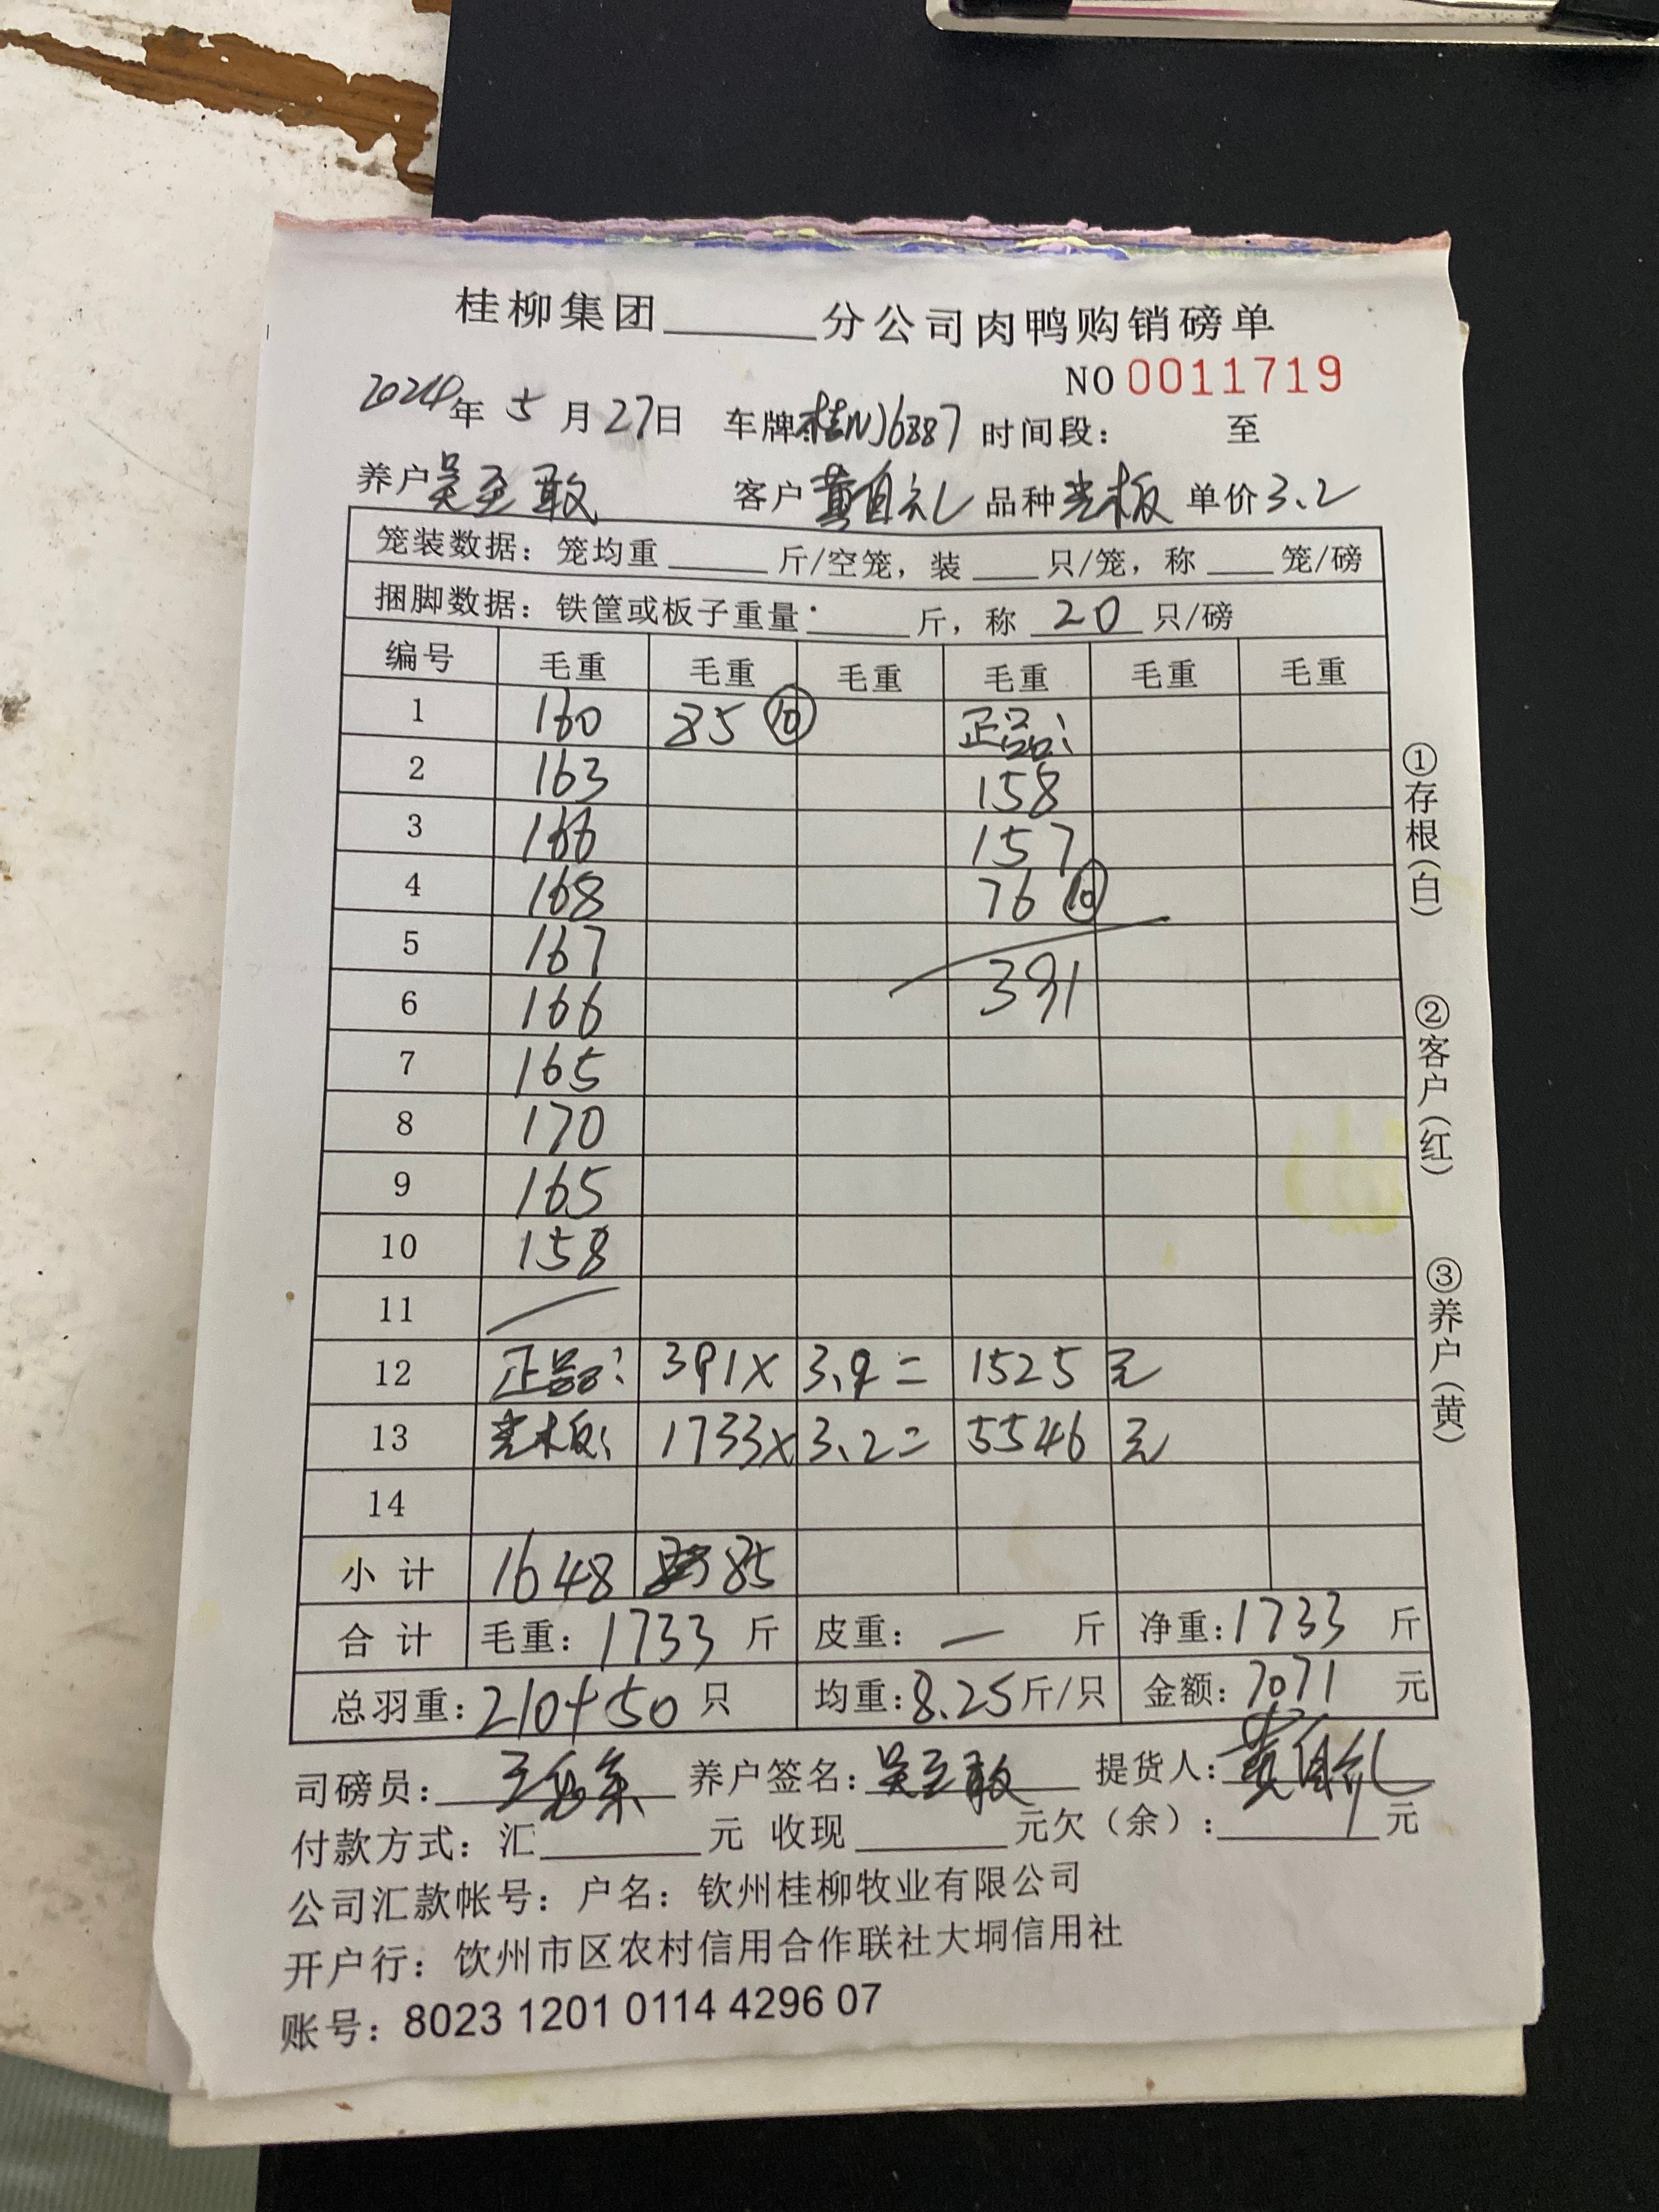 桂柳集团______分公司肉鸭购销磅单
NO 0011719
2024年 5月27日 车牌:桂NJ6887 时间段: 至
养户 吴至敢 客户 黄自礼 品种 光板 单价 3.2
笼装数据：笼均重____斤/空笼，装___只/笼，称___笼/磅
捆脚数据：铁筐或板子重量____斤，称 20 只/磅
编号 毛重 毛重 毛重 毛重 毛重 毛重
1 160 85 ⑩ 正品:
2 163 158
3 166 157
4 168 76 ⑩
5 167
6 166 391
7 165
8 170
9 165
10 158
11
12 正品: 391× 3.9= 1525 元
13 光板: 1733× 3.2= 5546 元
14
小计 1648 85
合计 毛重：1733 斤 皮重： — 斤 净重：1733 斤
总羽重：210+50 只 均重：8.25斤/只 金额：7071 元
司磅员： 养户签名：吴至敢 提货人：黄自礼
付款方式：汇______元 收现______元欠（余）:______元
公司汇款帐号：户名：钦州桂柳牧业有限公司
开户行：饮州市区农村信用合作联社大垌信用社
账号：8023 1201 0114 4296 07
①存根(白)
②客户(红)
③养户(黄)